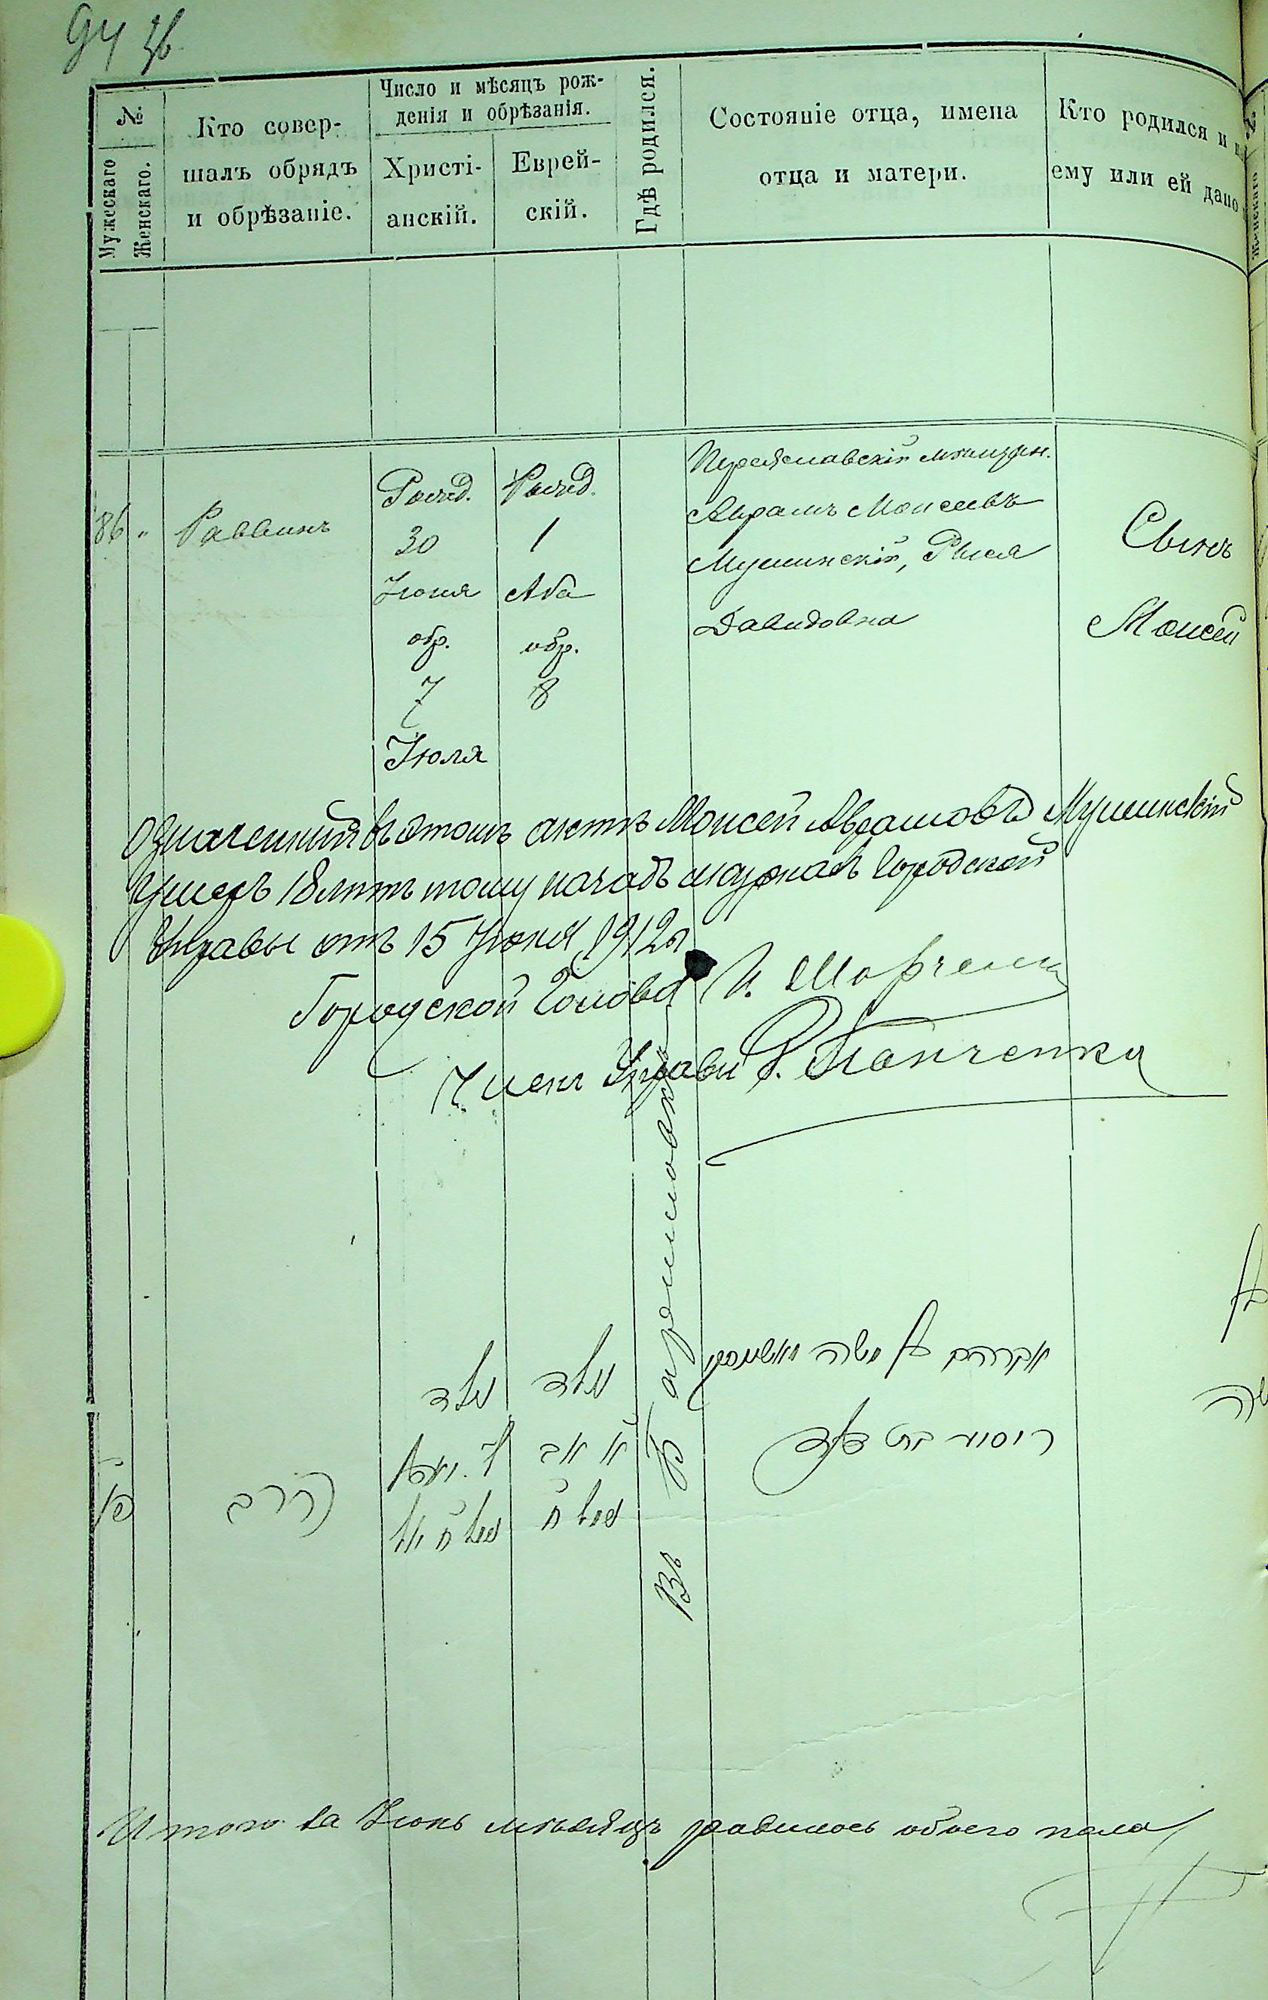 94 36
№
Мужескаго
Женскаго.
Кто совер-
шалъ обрядъ
и обрѣзаніе.
Число и мѣсяцъ рож-
денія и обрѣзанія.
Христі-
анскій.
Еврей-
скій.
Гдѣ родился.
Состояніе отца, имена
отца и матери.
Кто родился и
ему или ей дано
86 "
Раввинъ
Рожд.
30
Іюня
обр.
7
Іюля
Рожд.
1
Аба
обр.
8
Переяславскій мѣщан.
Абрамъ Моисеевъ
Мушинскій, Рыся
Давидовна
Сынъ
Моисей
Означенный въ этомъ актѣ Моисей Абрамовъ Мушинскій
умеръ 18 лѣтъ тому назадъ журналъ Городской
Управы отъ 15 Іюня 1912 г
Городской Голова И.
Членъ Управы
Въ
נולד
נולד
א אב
נימול ח
הרב
אברהם משה
ריסיא בת דוד
Итого за Іюнь мѣсяцъ родилось обоего пола